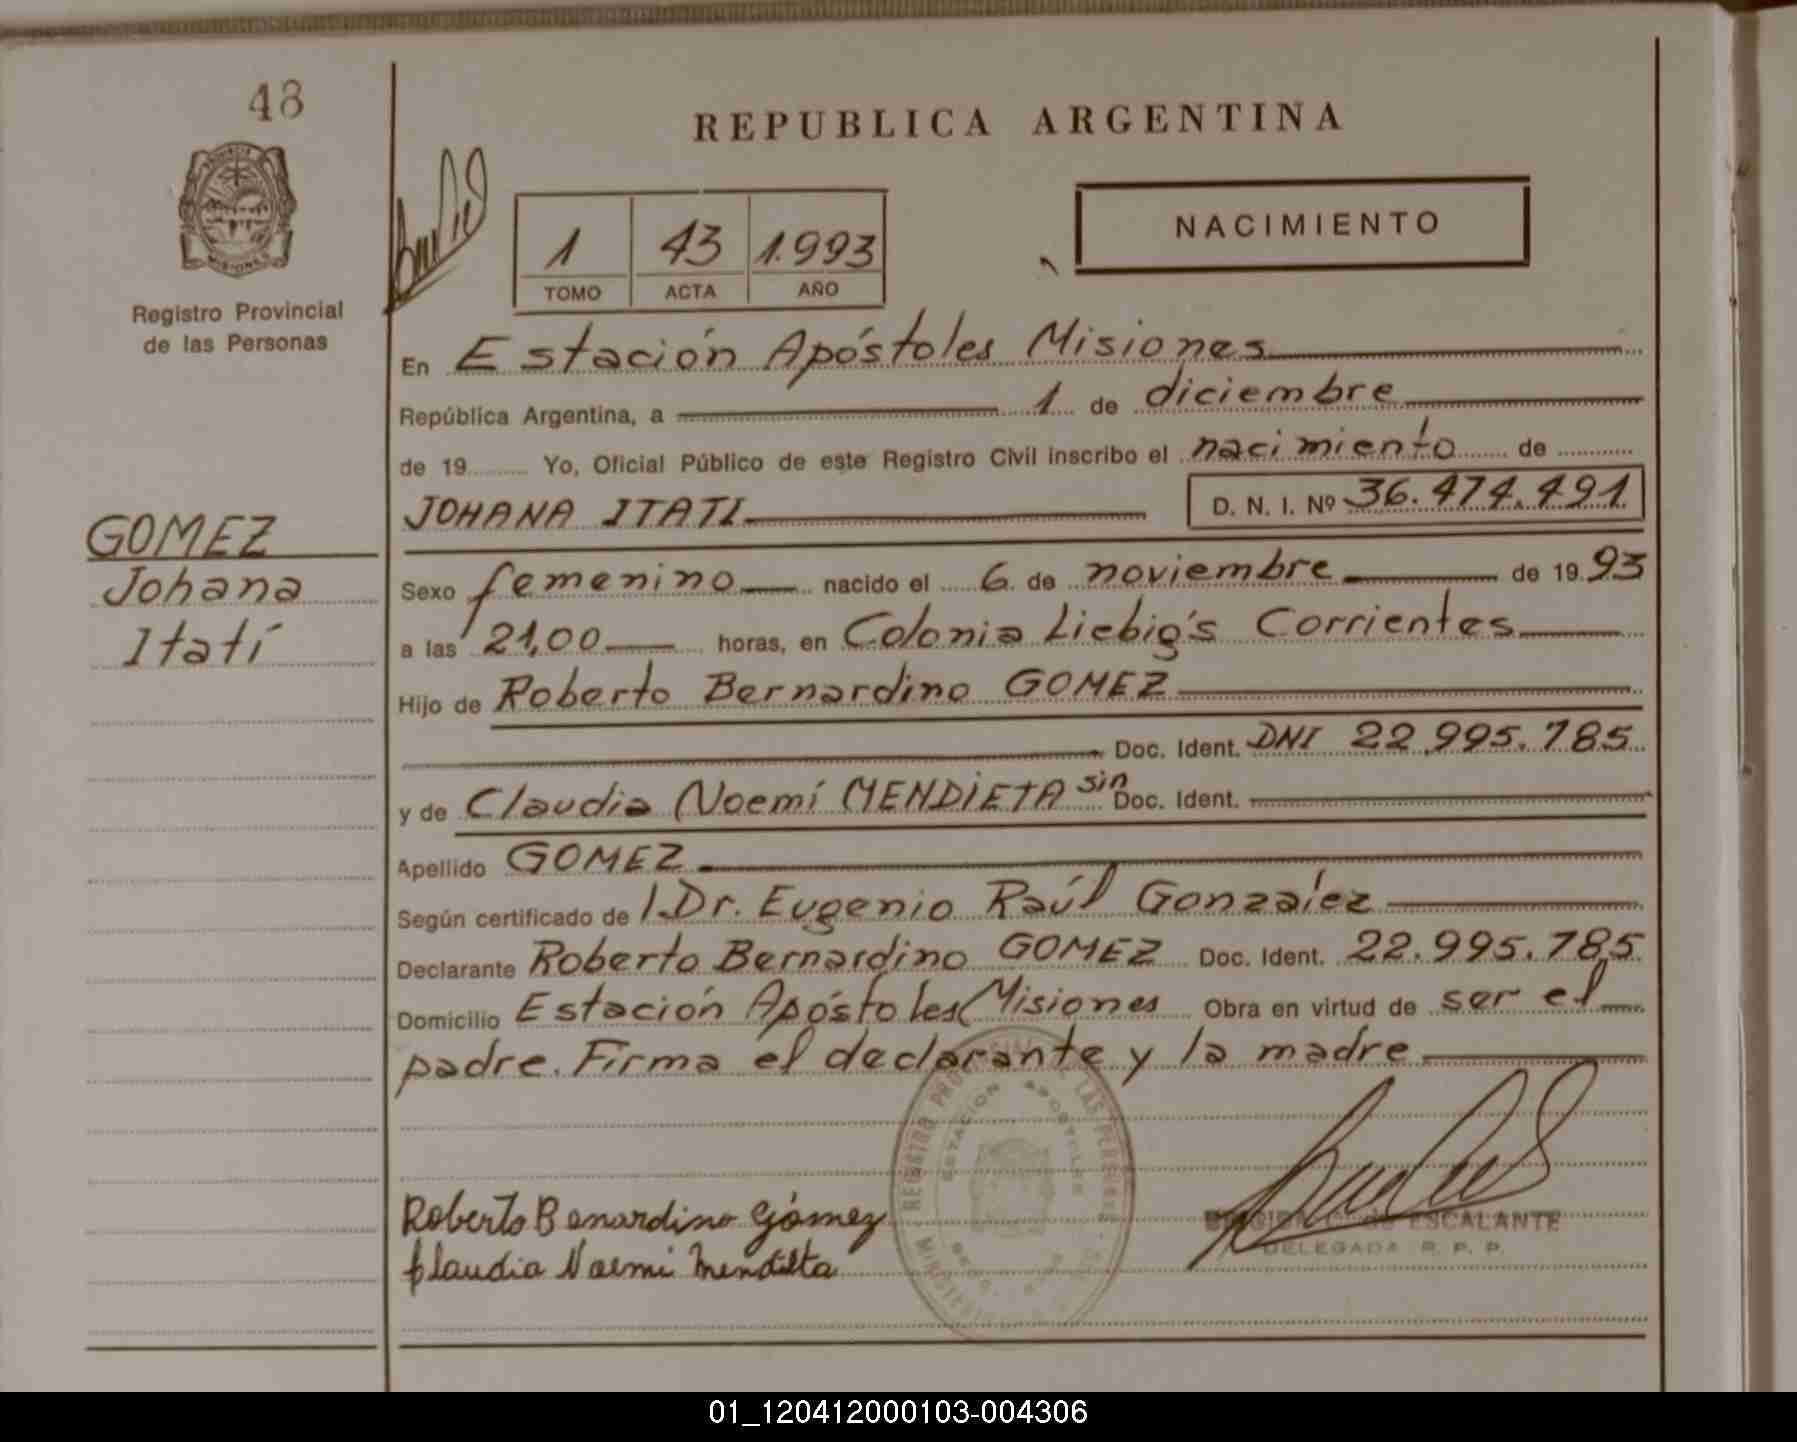 48
REPUBLICA ARGENTINA
NACIMIENTO
1 43 1.993
TOMO ACTA AÑO
Registro Provincial
de las Personas
MISIONES
En Estación Apóstoles Misiones
República Argentina, a 1 de diciembre
de 19 Yo, Oficial Público de este Registro Civil inscribo el nacimiento de
JOHANA ITATI D. N. I. Nº 36.474.491
GOMEZ
Johana
Itatí
Sexo femenino nacido el 6 de noviembre de 19 93
a las 21,00 horas, en Colonia Liebig's Corrientes
Hijo de Roberto Bernardino GOMEZ
Doc. Ident. DNI 22.995.785
y de Claudia Noemí MENDIETA sin Doc. Ident.
Apellido GOMEZ
Según certificado de Dr. Eugenio Raúl González
Declarante Roberto Bernardino GOMEZ Doc. Ident. 22.995.785
Domicilio Estación Apóstoles Misiones Obra en virtud de ser el
padre. Firma el declarante y la madre
REGISTRO PROVINCIAL DE LAS PERSONAS
ESTACION APOSTOLES
Roberto Bernardino Gómez
Claudia Noemi Mendieta
de ESCALANTE
DELEGADA R. P. P.
01_120412000103-004306